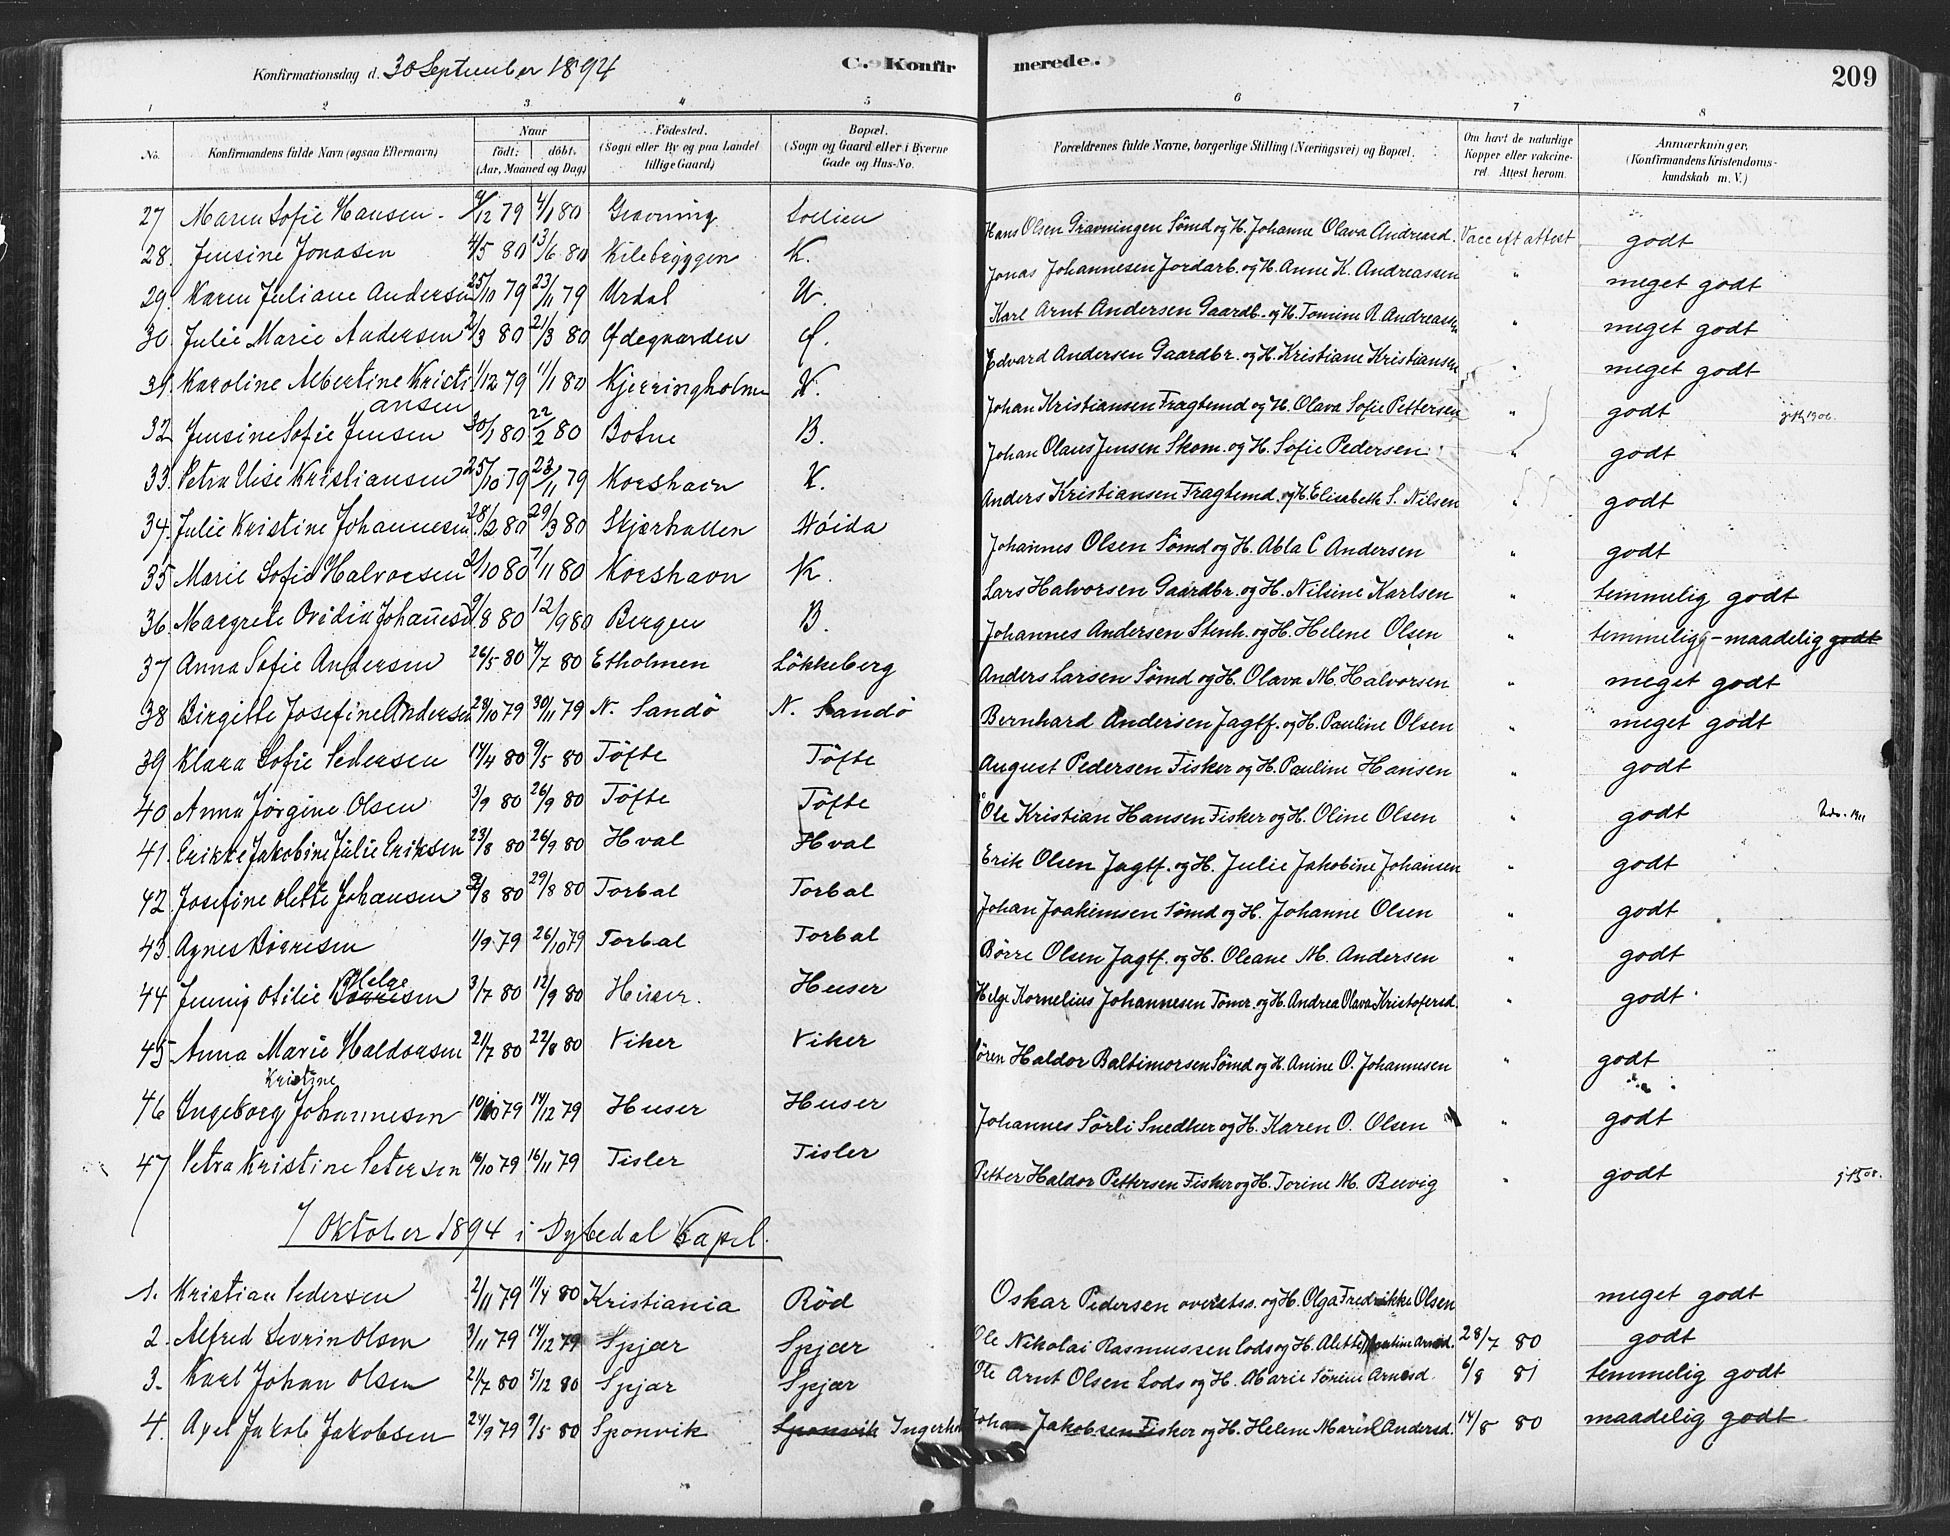 Konfirmationsdag d. 30 September 1894 C. Konfirmerede. 209
1 2 3 4 5 6 7 8
No. Konfirmandens fulde Navn (ogsaa Efternavn) Naar født: døbt: (Aar, Maaned og Dag) Fødested. (Sogn eller By og paa Landet tillige Gaard) Bopæl. (Sogn og Gaard eller i Byerne Gade og Hus-No. Forældrenes fulde Navne, borgerlige Stilling (Næringsvei) og Bopæl. Om havt de naturlige Kopper eller vakcineret. Attest herom. Anmærkninger, (Konfirmandens Kristendomskundskab m. V.)
27 Maren Sofie Hansen 12 79 4/1 80 Gravning Hans Olsen Gravningen Sømd og H. Johanne Olava Andreasd. Vacc eft attest godt
28. Jensine Jonasen 4/5 80 13/6 80 Kilebryggen K. Jonas Johannesen Jordarb. og H. Anne K. Andreassen " meget godt
29. Karen Juliane Andersen 25/10 79 23/11 79 Urdal U. Karl Arnt Andersen Gaardb. og H. Tomine R. Andreassen " meget godt
30. Julie Marie Andersen 2/3 80 21/3 80 Ødegaarden Ø. Edvard Andersen Gaardbr. og H. Kristiane Kristiansen " meget godt
31. Karoline Albertine Kristiansen 1/12 79 11/1 80 Kjerringholmen K. Johan Kristiansen Fragtemd og H. Olava Sofie Pettersen " godt
32 Jensine Sofie Jensen 30/1 80 22/2 80 Botne B. Johan Olaus Jensen Skom. og H. Sofie Pedersen " godt
33. Petra Elise Kristiansen 25/10 79 23/11 79 Korshavn K. Anders Kristiansen Fragtemd. og H. Elisabeth S. Nilsen " godt
34. Julie Kristine Johannesen 28/2 80 29/3 80 Skjærhallen Høida Johannes Olsen Sømd og H. Abla C Andersen " godt
35 Marie Sofie Halvorsen 2/10 80 7/11 80 Korshavn K. Lars Halvorsen Gaardbr. og H. Nilsine Karlsen " temmelig godt
36. Margrete Ovidia Johannesen 9/8 80 12/9 80 Bergen B. Johannes Andersen Stenh. og H. Helene Olsen " temmelig - maadelig godt
37 Anna Sofie Andersen 26/5 80 4/7 80 Etholmen Løkkeberg Anders Larsen Sømd og H. Olava M. Halvorsen " meget godt
38 Birgitte Josefine Andersen 28/10 79 30/11 79 N. Sandø N. Sandø Bernhard Andersen Jagtf. og H. Pauline Olsen " meget godt
39 Klara Sofie Pedersen 17/4 80 9/5 80 Tøfte Tøfte August Pedersen Fisker og H. Pauline Hansen " godt
40 Anna Jørgine Olsen 3/9 80 26/9 80 Tøfte Tøfte Ole Kristian Hansen Fisker og H. Oline Olsen " godt
41. Erikke Jakobine Julie Eriksen 23/8 80 26/9 80 Hval Hval Erik Olsen Jagtf. og H. Julie Jakobine Johansen " godt
42 Josefine Olette Johansen 2/8 80 29/8 80 Torbal Torbal Johan Joakimsen Sømd og H. Johanne Olsen " godt
43. Agnes Børresen 1/9 79 26/10 79 Torbal Torbal Børre Olsen Jagtf. og H. Oleane M. Andersen " godt
44 Jenny Otilie Helge Børresen 3/7 80 12/9 80 Huser. Huser Helge Kornelius Johannesen Tømr. og H. Andrea Olava Kristofersd. " godt
45 Anna Marie Haldorsen 21/7 80 22/8 80 Viker Viker Søren Haldor Baltimorsen Sømd og H. Anine O. Johannesen " godt
46 Ingeborg Kristine Johannesen 10/10 79 14/12 79 Huser Huser Johannes Sørli Snedker og H. Karen O. Olsen " godt
47 Petra Kristine Petersen 16/10 79 16/11 79 Tisler Tisler Petter Haldor Pettersen Fisker og H. Torine M. Bervig " godt
7 Oktober 1894 i Dybedal Kapel.
1. Kristian Pedersen 2/11 79 11/4 80 Kristiania Rød Oskar Pedersen overstss. og H. Olga Fredrikke Olsen meget godt
2. Alfred Sevrin Olsen 3/11 79 14/12 79 Spjær Spjær Ole Nikolai Rasmussen Lods og H. Alette Arnesd. 28/7 80 godt
3. Karl Johan Olsen 21/7 80 5/12 80 Spjær Spjær Ole Arnt Olsen Lods og H. Marie Sørine Arnesd. 6/8 81 temmelig godt
4. Axel Jakob Jakobsen 24/9 79 9/5 80 Sponvik Sponvik Johan Jakobsen Fisker og H. Helene Marie Andersd. 14/8 80 maadelig godt